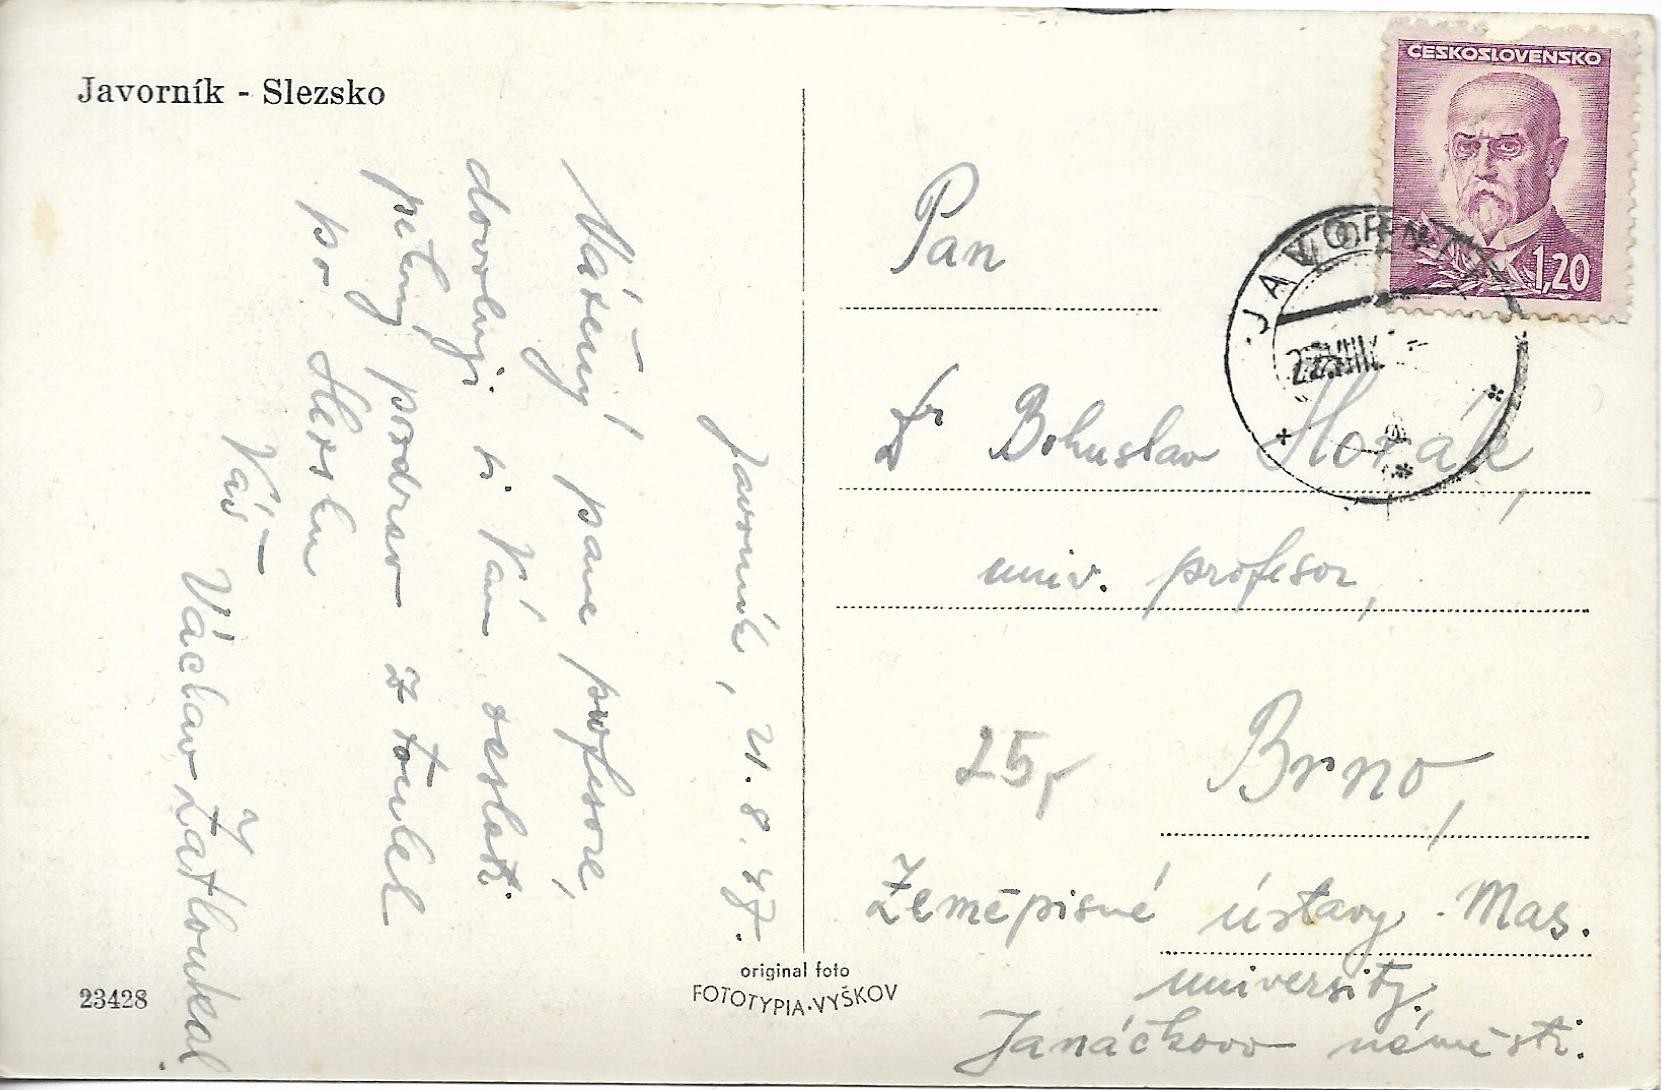 Javorník - Slezsko
Javorník, 21. 8. 47.
Vážený pane profesore,
dovoluji si Vám zaslati
pěkný pozdrav z toulek
po Slezsku
Váš
Václav Zatloukal
23428
original foto
FOTOTYPIA·VYŠKOV
ČESKOSLOVENSKO
1,20
JAVORN
VIII
Pan
Dr Bohuslav Horák,
univ. profesor,
25,
Brno,
Zeměpisné ústavy Mas.
university.
Janáčkovo náměstí.